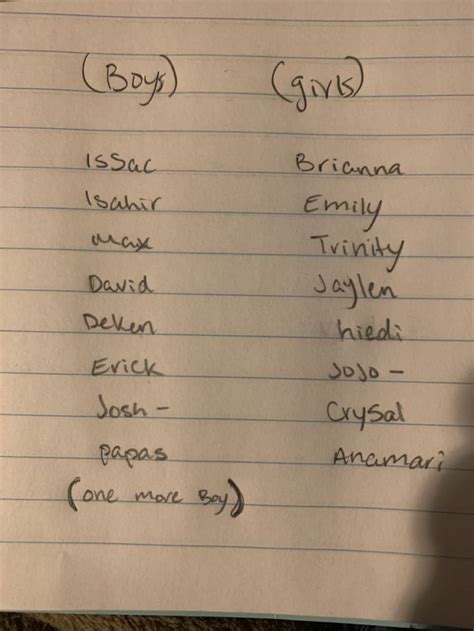 (Boys) (girls)
Issac Brianna
Isahir Emily
Max Trinity
David Jaylen
Deken hiedi
Erick JoJo -
Josh - Crysal
papas Anamari
(one more Boy)